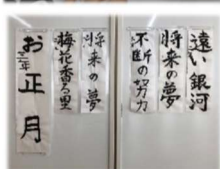 遠い銀河
将来の夢
不断の努力
将来の夢
梅花香る里
お正月